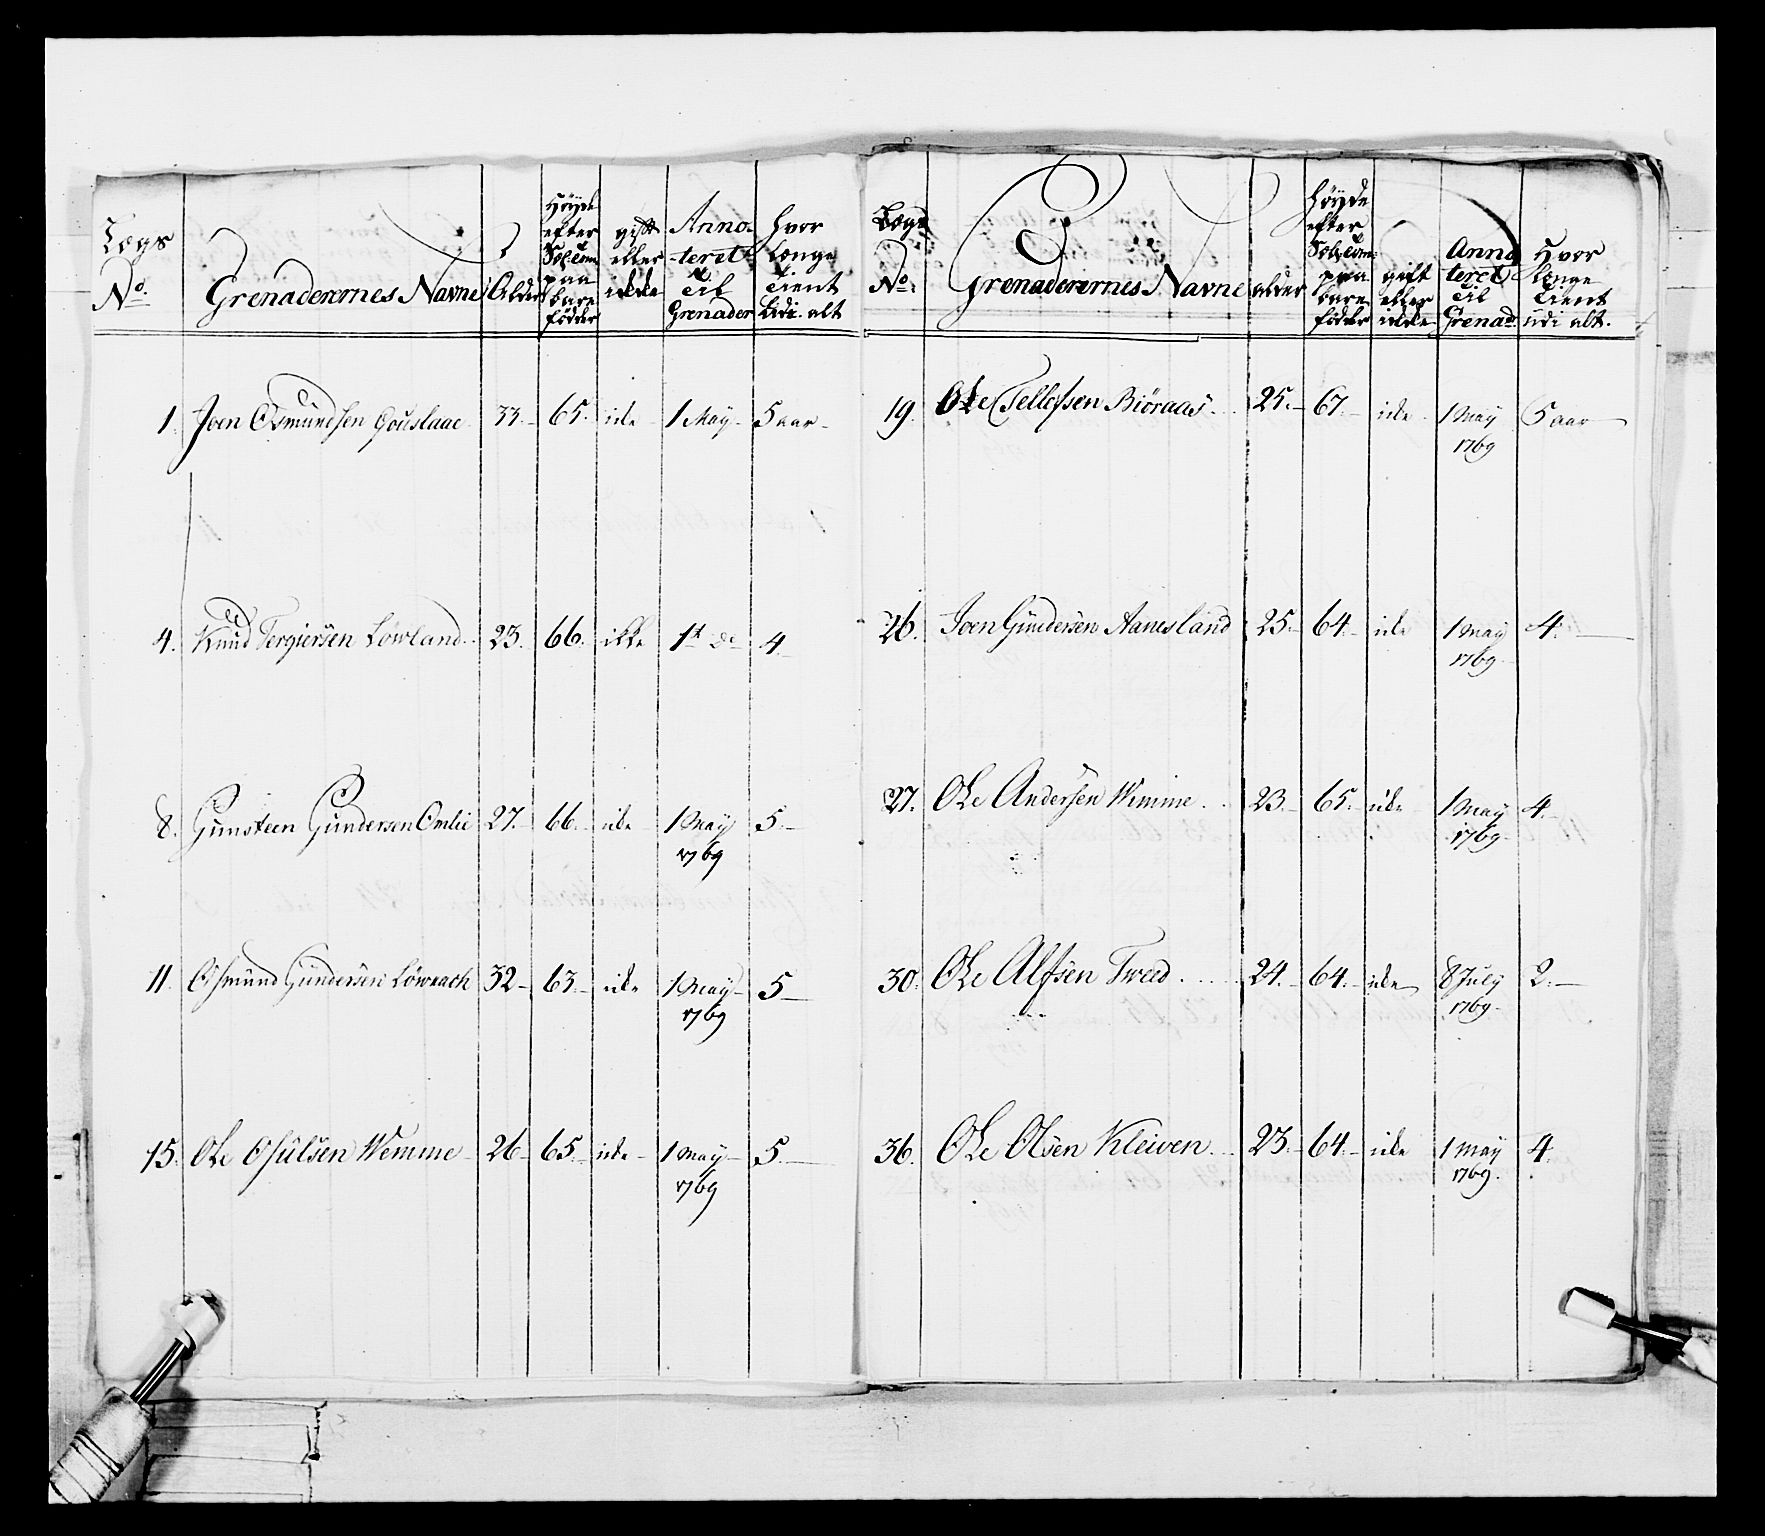 Lægs
No.
Grenaderernes Navne
Alder
Höyde
efter
paa
bare
födder
gift
eller
ikke
Anno-
-teret
til
Grenader
Hvor
længe
tient
udi alt
1. Joen Osmundsen Gouslaae 33.- 65. ike 1 May- 5 aar-
4. Knud Tergiersen Löwland.. 23. 66. ikke 1st do 4-
8. Gunsteen Gundersen Omlie 27.- 66.- ike 1 May 5.-
1769
11. Osmund Gundersen Löwrach 32- 63.- ike 1 May- 5-
1769
15. Ole Osulsen Wemme- 26- 65.- ike- 1 May- 5.-
1769
Lægs
No.
Grenaderernes Navne
alder
Höyde
efter
paa
bare
födder
gift
eller
ikke
Anno
teret
til
Grenad.
Hvor
længe
tient
udi alt.
19. Ole Tellefsen Biöraas.. 25.- 67.- ike 1 May 5 aar
1769
26. Joen Gundersen Aanesland 25.- 64.- ike 1 May 4.-
1769
27. Ole Andersen Wemme.. 23.- 65.- ike 1 May 4.-
1769
30. Ole Alfsen Tweed..... 24.- 64.- ike 8 July 2.-
1769
36. Ole Olsen Kleiven... 23.- 64.- ike 1 May 4.
1769.